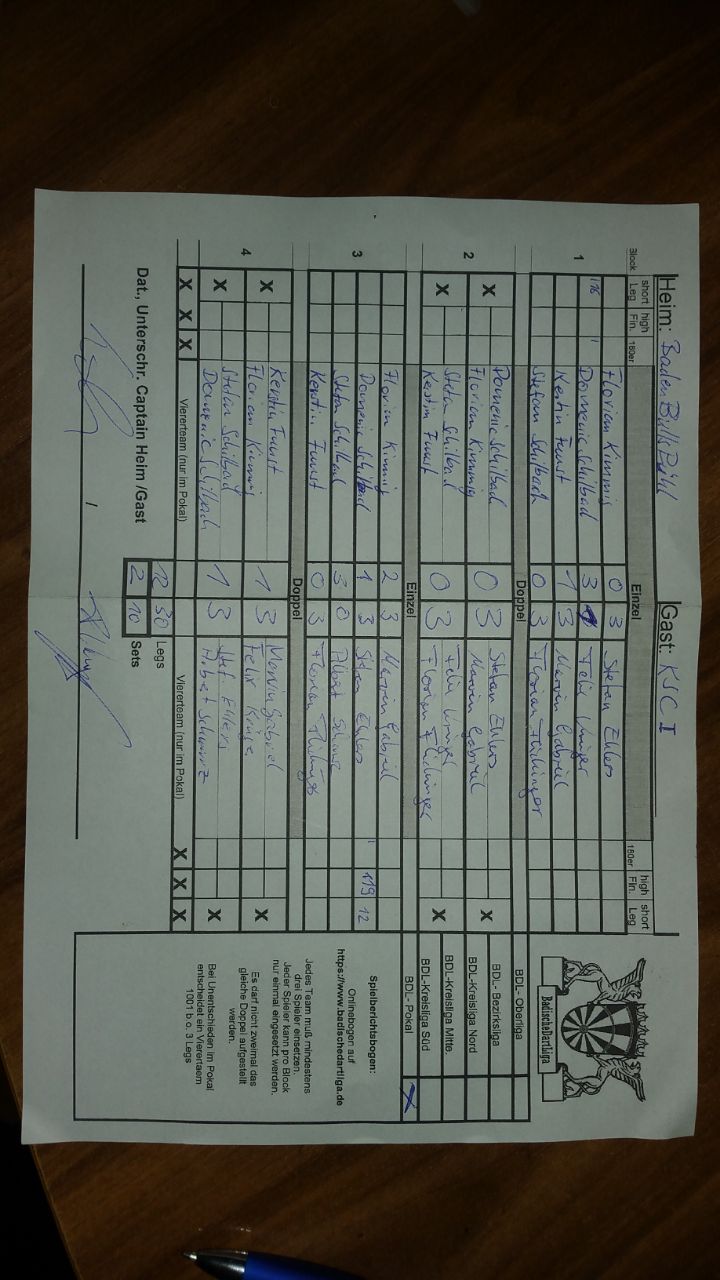 Heim: Baden Bulls Bühl Gast: KSC I
Block short Leg high Fin. 180er Einzel 180er high Fin. short Leg
1 Florian Kimmig 0 3 Stefan Ehlers
116 Domenic Schilbad 3 Felix Krüger
Kerstin Funst 1 3 Marvin Gabriel
Stefan Schilbach 0 3 Florian
Doppel
2 X Domenic Schilbad 0 3 Stefan Ehlers X
Florian Kimmig Marvin Gabriel
X Stefan Schilbad 0 3 Felix Krüger X
Kerstin Funst Florian
Einzel
3 Florian Kimmig 2 3 Marvin Gabriel
Domenic Schilbad 1 3 Stefan Ehlers 1 119 12
Stefan Schilbad 3 0 Albert Schwarz
Kerstin Funst 0 3 Florian
Doppel
4 X Kerstin Funst 1 3 Marvin Gabriel X
Florian Kimmig Felix Krüger
X Stefan Schilbad 1 3 Stef. Ehlers X
Domenic Schilbach Albert Schwarz
X X X Viererteam (nur im Pokal) Viererteam (nur im Pokal) X X X
12 30 Legs
2 10 Sets
Dat., Unterschr. Captain Heim /Gast
/
Badische Dart Liga
BDL - Oberliga
BDL- Bezirksliga
BDL-Kreisliga Nord
BDL-Kreisliga Mitte
BDL-Kreisliga Süd
BDL- Pokal X
Spielberichtsbogen:
Onlinebogen auf
https://www.badischedartliga.de
Jedes Team muß mindestens
drei Spieler einsetzen.
Jeder Spieler kann pro Block
nur einmal eingesetzt werden.
Es darf nicht zweimal das
gleiche Doppel aufgestellt
werden.
Bei Unentschieden im Pokal
entscheidet ein Viererteam
1001 b o. 3 Legs